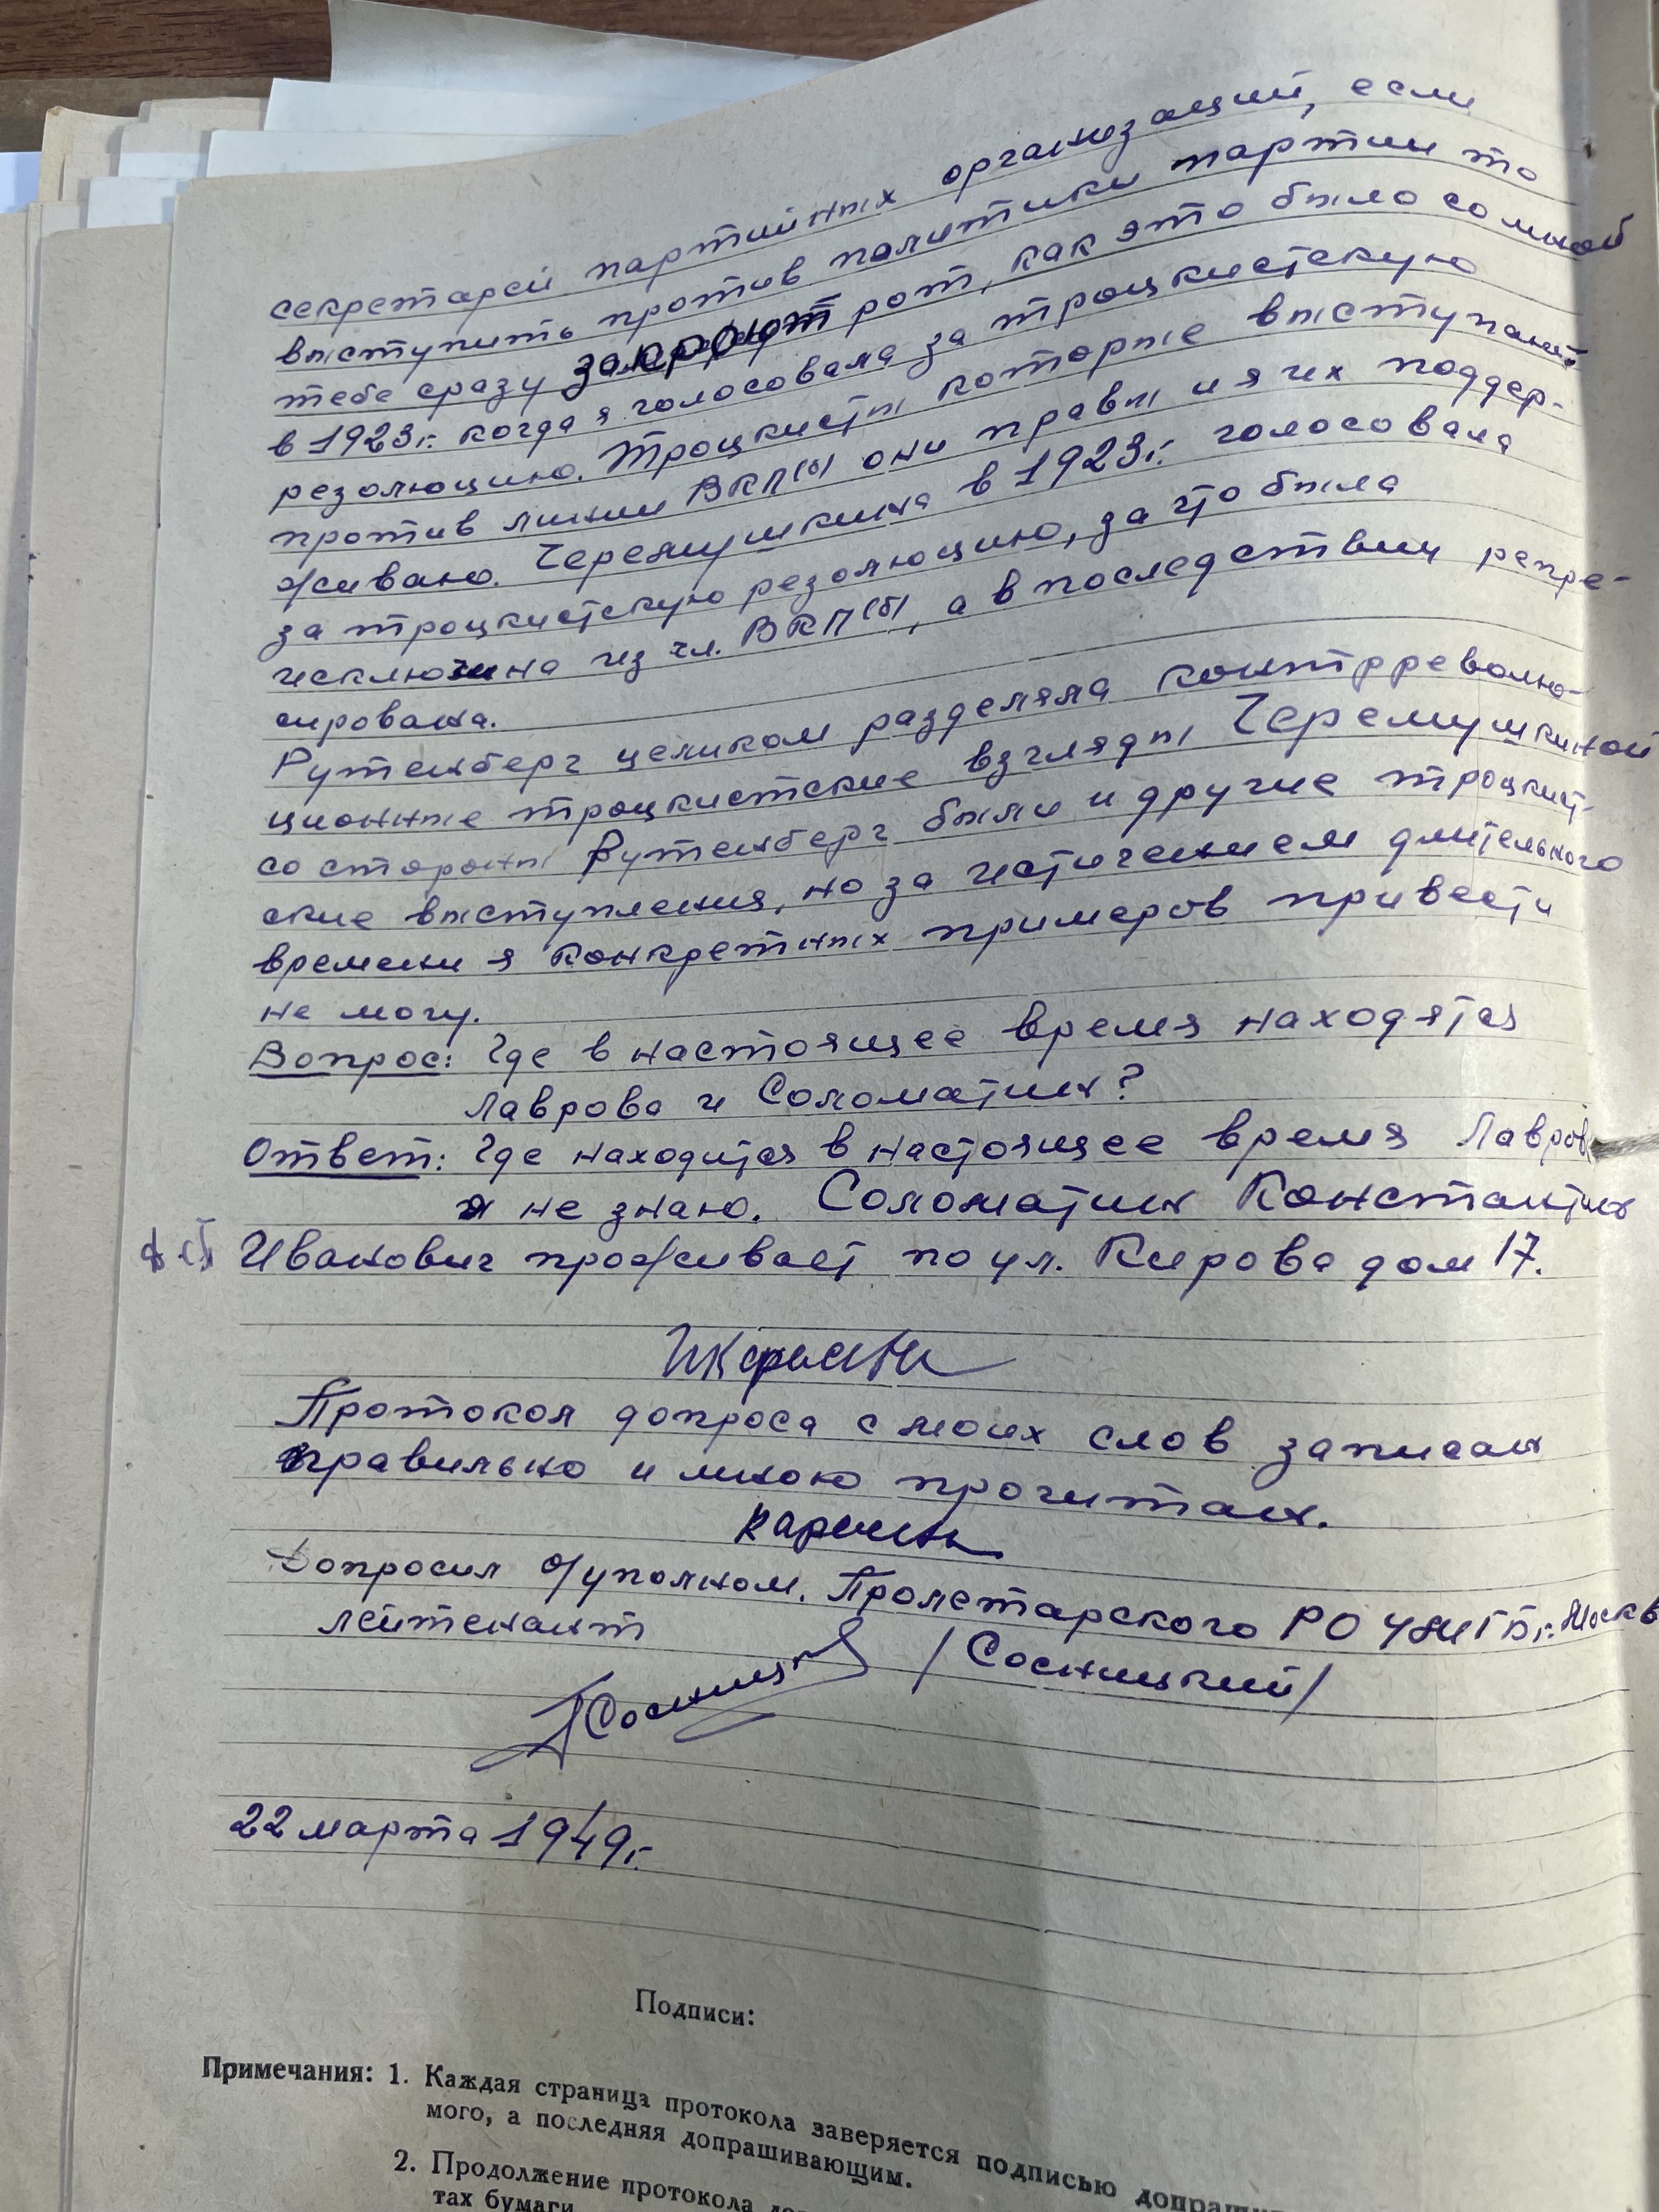 секретарей партийных организаций, если
выступить против политики партии то
тебе сразу закроют рот, как это было со мной
в 1923г. когда я голосовала за троцкистскую
резолюцию. Троцкисты которые выступают
против линии ВКП(б) они правы и я их поддер-
живаю. Черемушкина в 1923г. голосовала
за троцкистскую резолюцию, за что была
исключена из чл. ВКП(б), а в последствии репре-
сирована.
Рутенберг целиком разделяла контрреволю-
ционные троцкистские взгляды Черемушкиной
со стороны Рутенберг были и другие троцкист-
ские выступления, но за истичением длительного
времени я конкретных примеров привести
не могу.
Вопрос: Где в настоящее время находятся
Лаврова и Соломатин?
Ответ: Где находится в настоящее время Лаврова
я не знаю. Соломатин Константин
Иванович проживает по ул. Кирова дом 17.
Протокол допроса с моих слов записан
правильно и мною прочитан.
Допросил о/уполном. Пролетарского РО УМГБ г. Москв
лейтенант
/Сосницкий/
22 марта 1949г.
Подписи:
Примечания: 1. Каждая страница протокола заверяется подписью допраши
мого, а последняя допрашивающим.
2. Продолжение протокола
тах бумаги